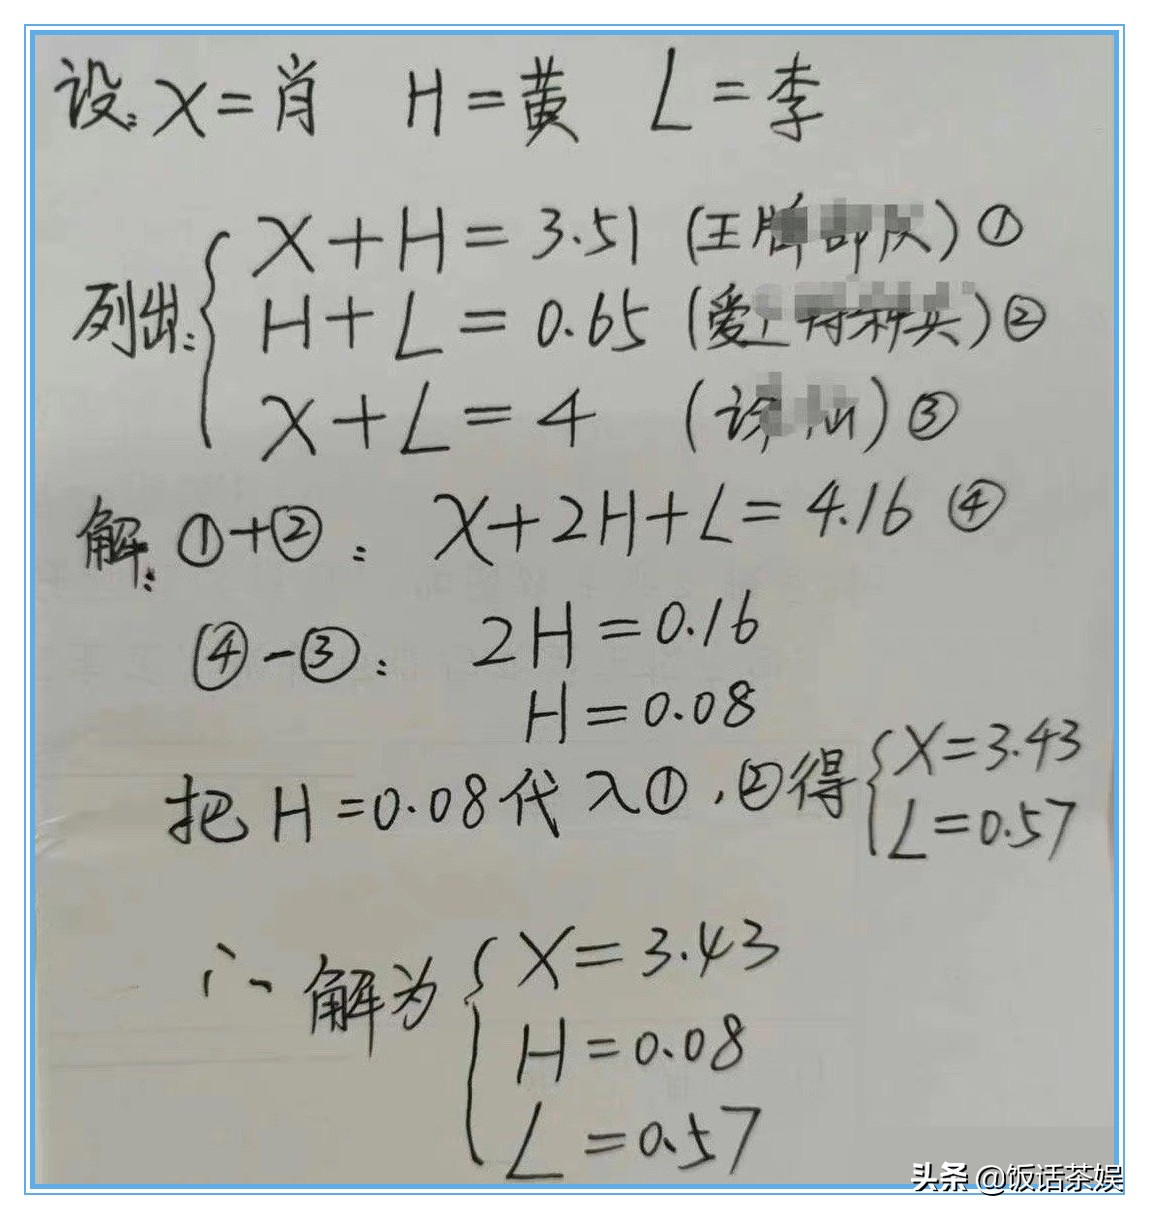 设: X=肖 H=黄 L=李
X+H=3.51 (王牌部队) ①
列出: H+L=0.65 (爱上特种兵) ②
X+L=4 ( ) ③
解: ①+②: X+2H+L=4.16 ④
④-③: 2H=0.16
H=0.08
把 H=0.08代入①,②得 X=3.43
L=0.57
∴ 解为 X=3.43
H=0.08
L=0.57
头条 @饭话茶娱